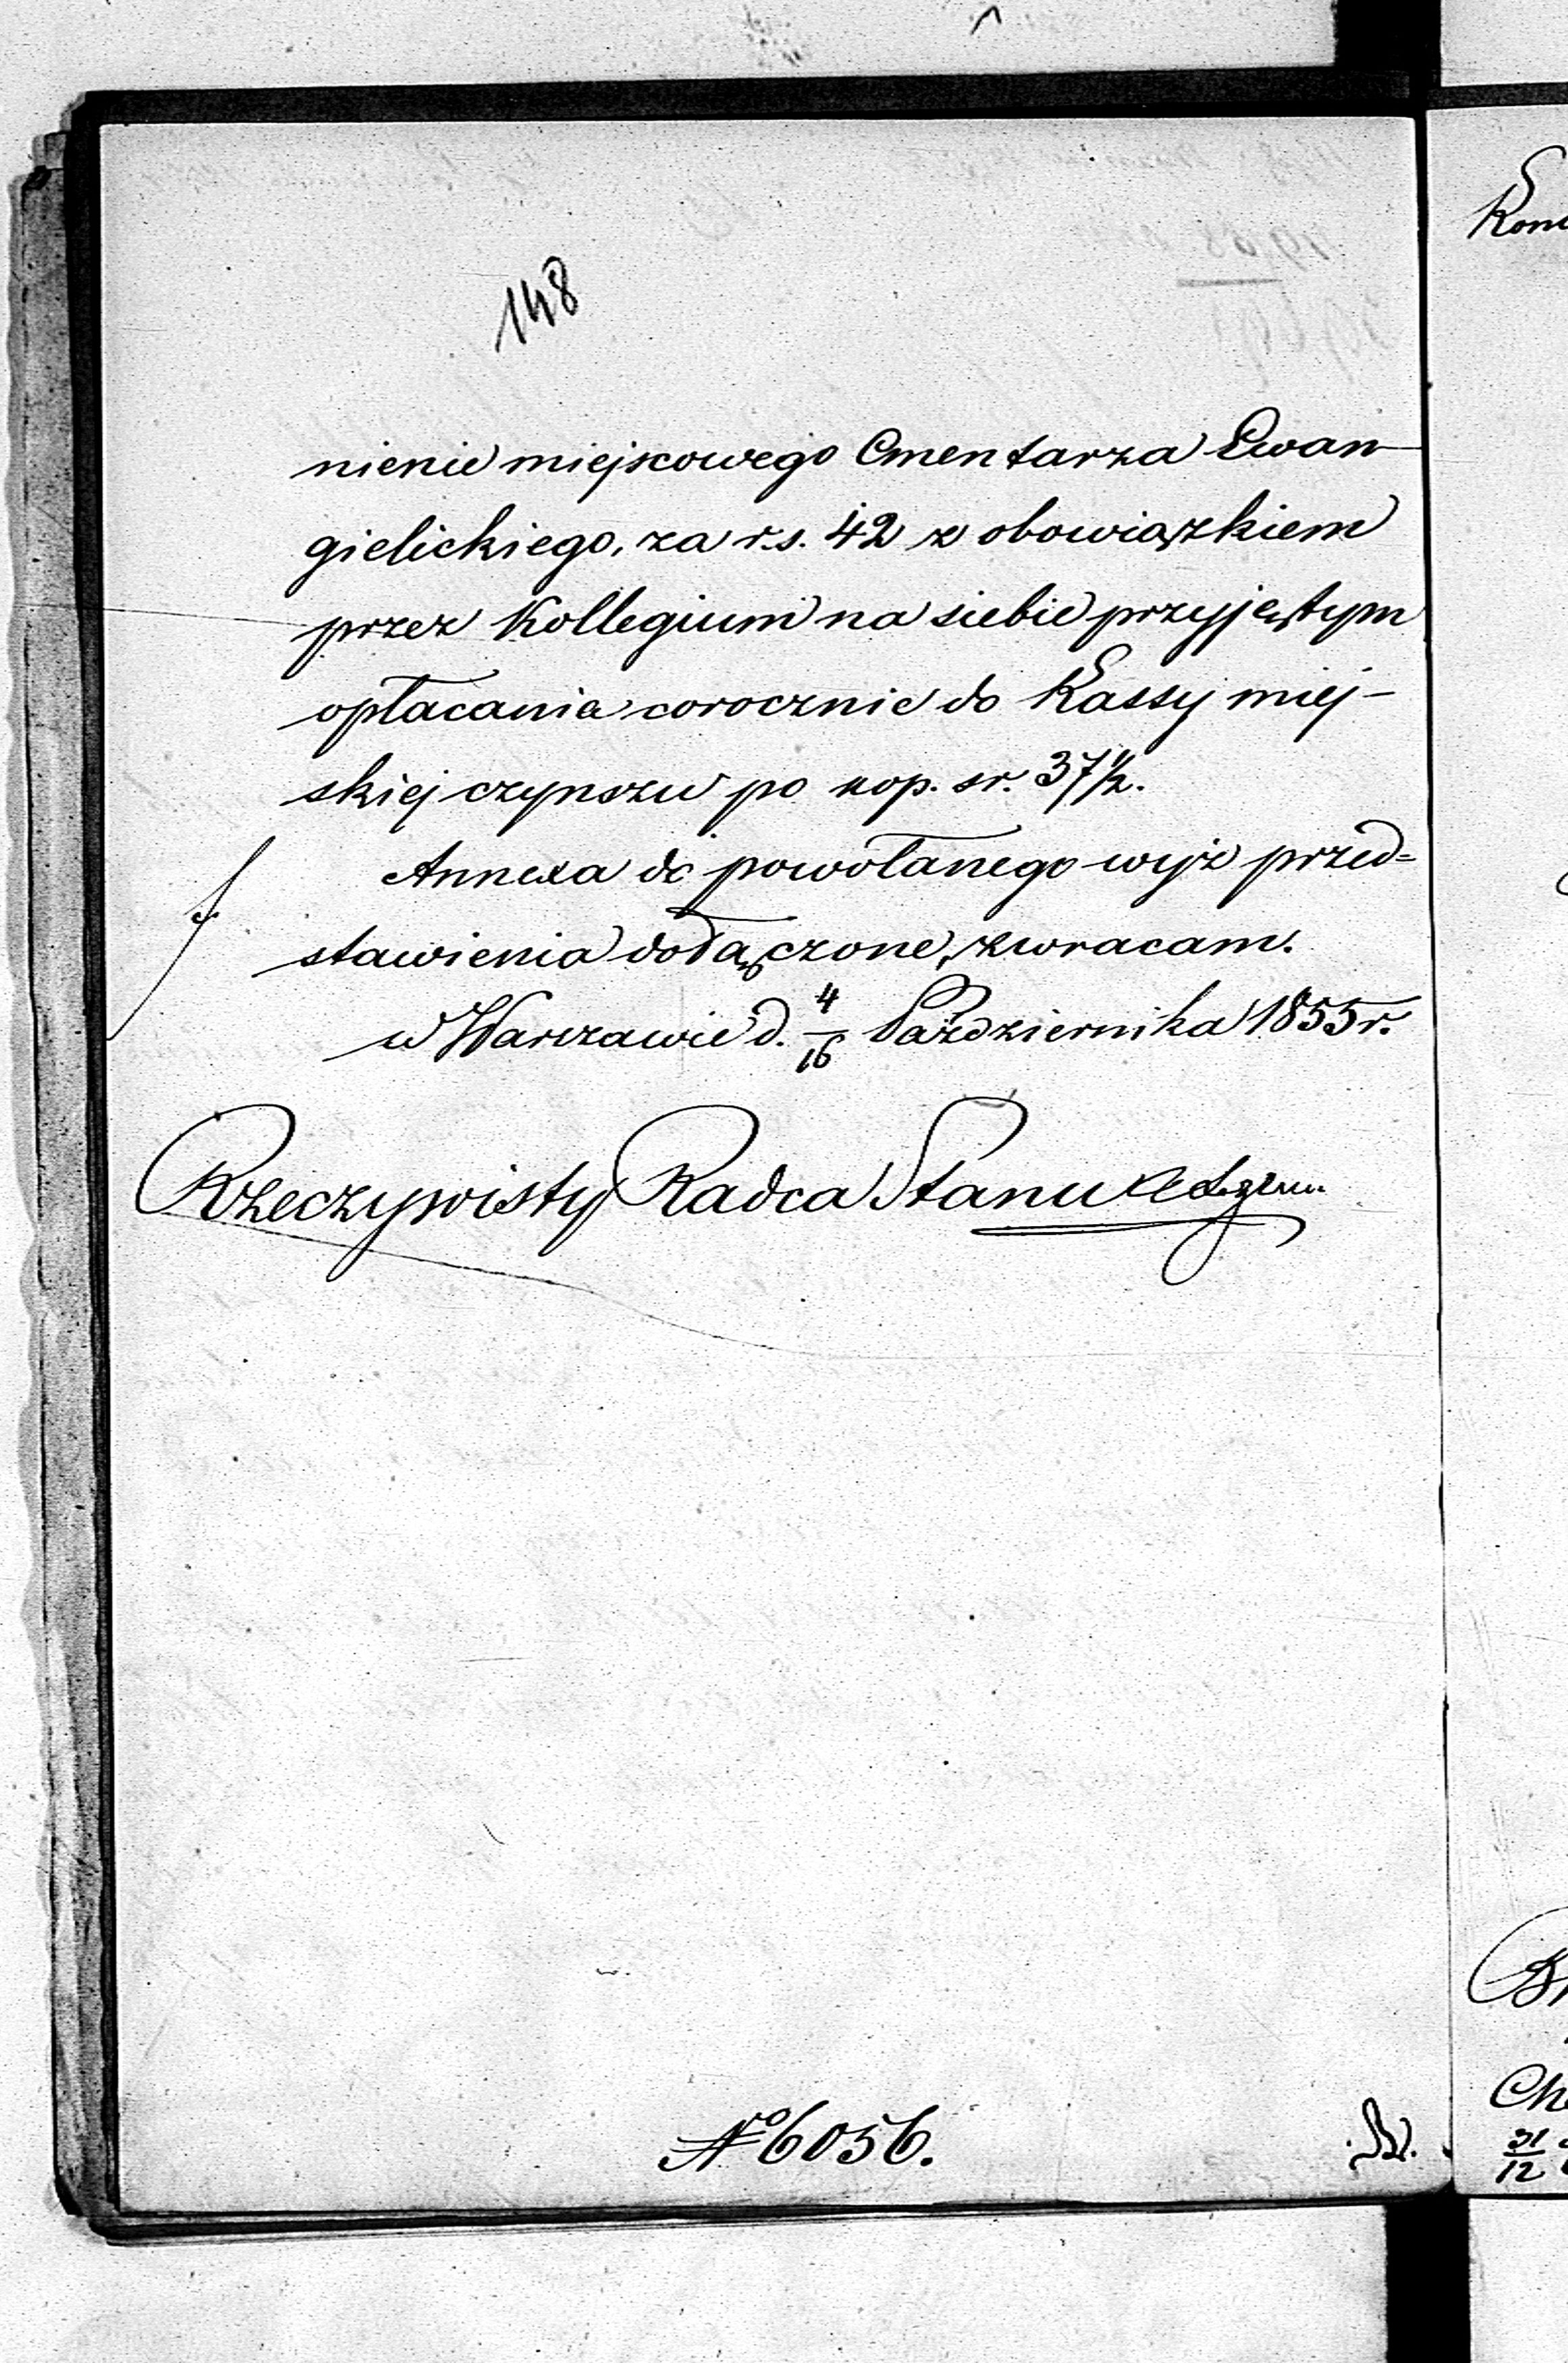 148
nienie miejscowego Cmentarza Ewan-
gielickiego, za r.s. 42 z obowiązkiem
przez Kollegium na siebie przyjętym
opłacania corocznie do Kassy miej-
skiej czynszu po kop. sr. 37½.
Annexa do powołanego wyż przed=
stawienia dołączone, zwracam.
w Warszawie d. 4/16 Października 1855 r.
Rzeczywisty Radca Stanu
№ 6056.
Che
31/12